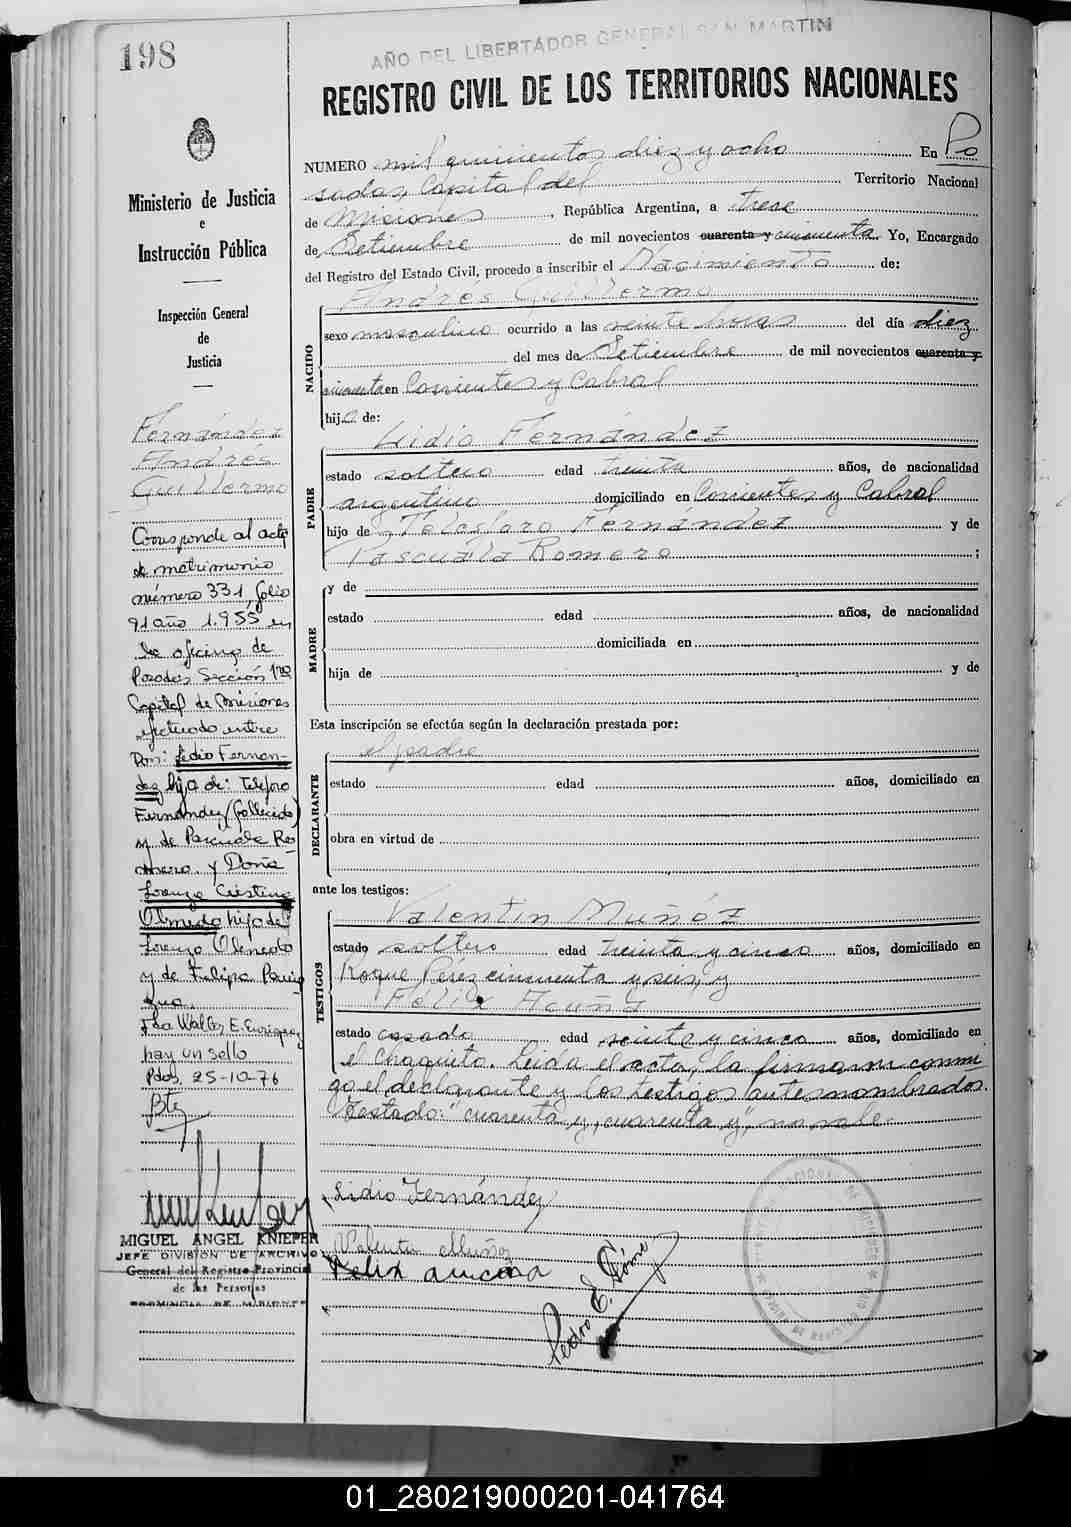 198
AÑO DEL LIBERTADOR GENERAL SAN MARTIN
REGISTRO CIVIL DE LOS TERRITORIOS NACIONALES
Ministerio de Justicia
e
Instrucción Pública
Inspección General
de
Justicia
Fernández
Andrés
Guillermo
Corresponde al acta
de matrimonio
número 331, folio
91 año 1.955 en
la oficina de
Posadas Sección 1ra
Capital de Misiones
efectuado entre
Don: Lidio Fernan-
dez hijo de: Telesforo
Fernandez (fallecido)
y de Pascuala Ro-
mero. y Doña
Lorenza Cristina
Olmedo hija de
Lorenzo Olmedo
y de Felipa
Fdo Walter E. Enriquez
hay un sello
Pdas. 25-10-76
MIGUEL ANGEL KNIEPER
JEFE DIVISION DE ARCHIVO
General del Registro Provincial
de las Personas
PROVINCIA DE MISIONES
NUMERO mil quinientos diez y ocho En Po
sadas, Capital del Territorio Nacional
de Misiones, República Argentina, a trece
de Setiembre de mil novecientos cuarenta y cincuenta Yo, Encargado
del Registro del Estado Civil, procedo a inscribir el Nacimiento de:
Andrés Guillermo
NACIDO
sexo masculino ocurrido a las veinte horas del día diez
del mes de Setiembre de mil novecientos cuarenta y
cincuenta en Corrientes y Cabral
hijo de:
Lidio Fernández
PADRE
estado soltero edad treinta años, de nacionalidad
argentino domiciliado en Corrientes y Cabral
hijo de Telesforo Fernández y de
Pascuala Romero ;
MADRE
y de
estado edad años, de nacionalidad
domiciliada en
hija de y de
Esta inscripción se efectúa según la declaración prestada por:
el padre
DECLARANTE
estado edad años, domiciliado en
obra en virtud de
ante los testigos:
Valentín Muñóz
TESTIGOS
estado soltero edad treinta y cinco años, domiciliado en
Roque Perez cincuenta y seis, y
Felix Acuña
estado casado edad veinte y cinco años, domiciliado en
el Chaquito. Leida el acta, la firman conmi
go el declarante y los testigos antes nombrados.
Testado: "cuarenta y, cuarenta y", no vale.
Lidio Fernández
Valentin Muñoz
Felix Acuña
Pedro E. Gómez
01_280219000201-041764